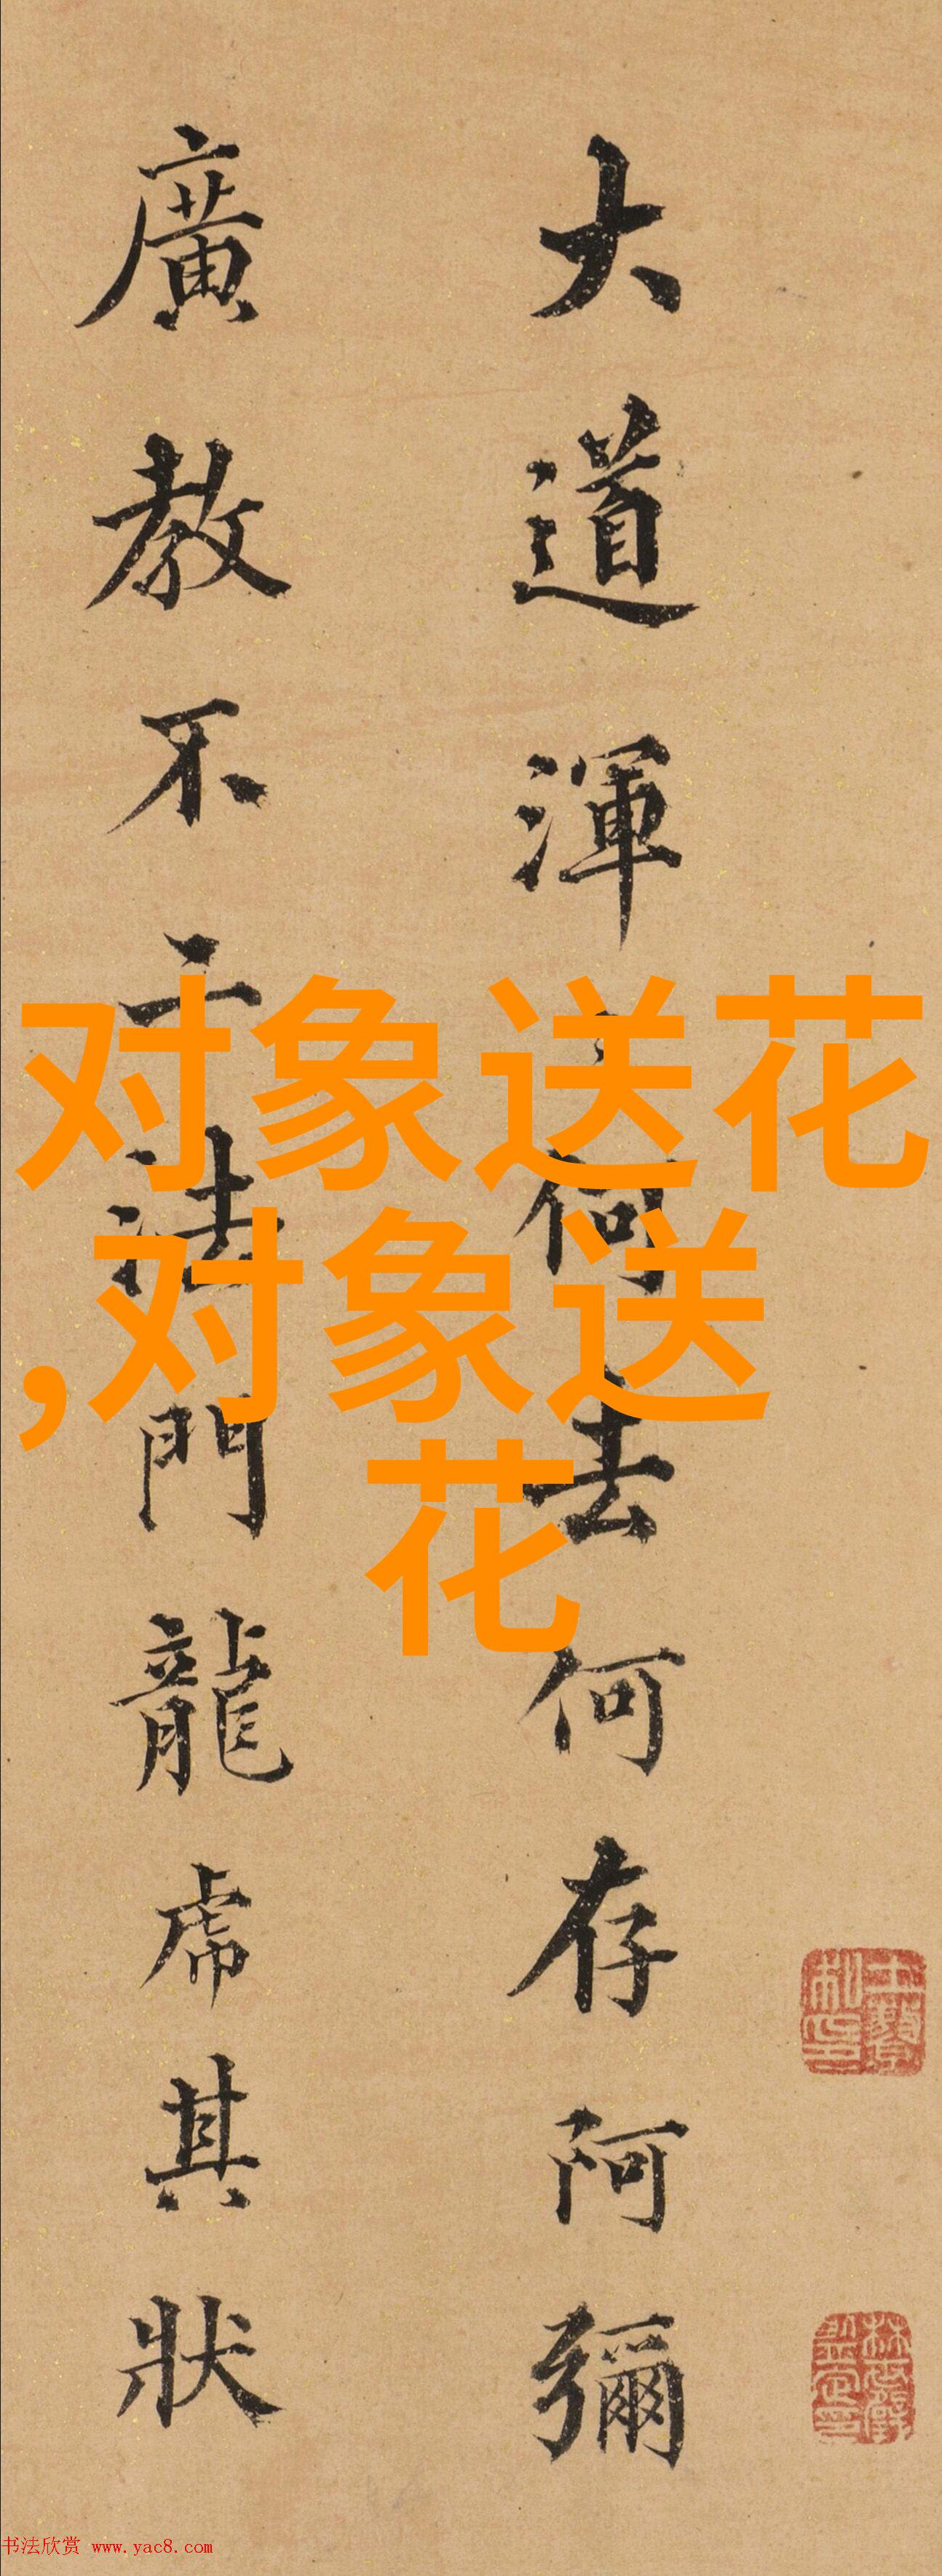 大道渾何去何存阿彌
廣教不二法門龍虎其狀
对象送花
,对象送
花
书法欣赏 www.yac8.com